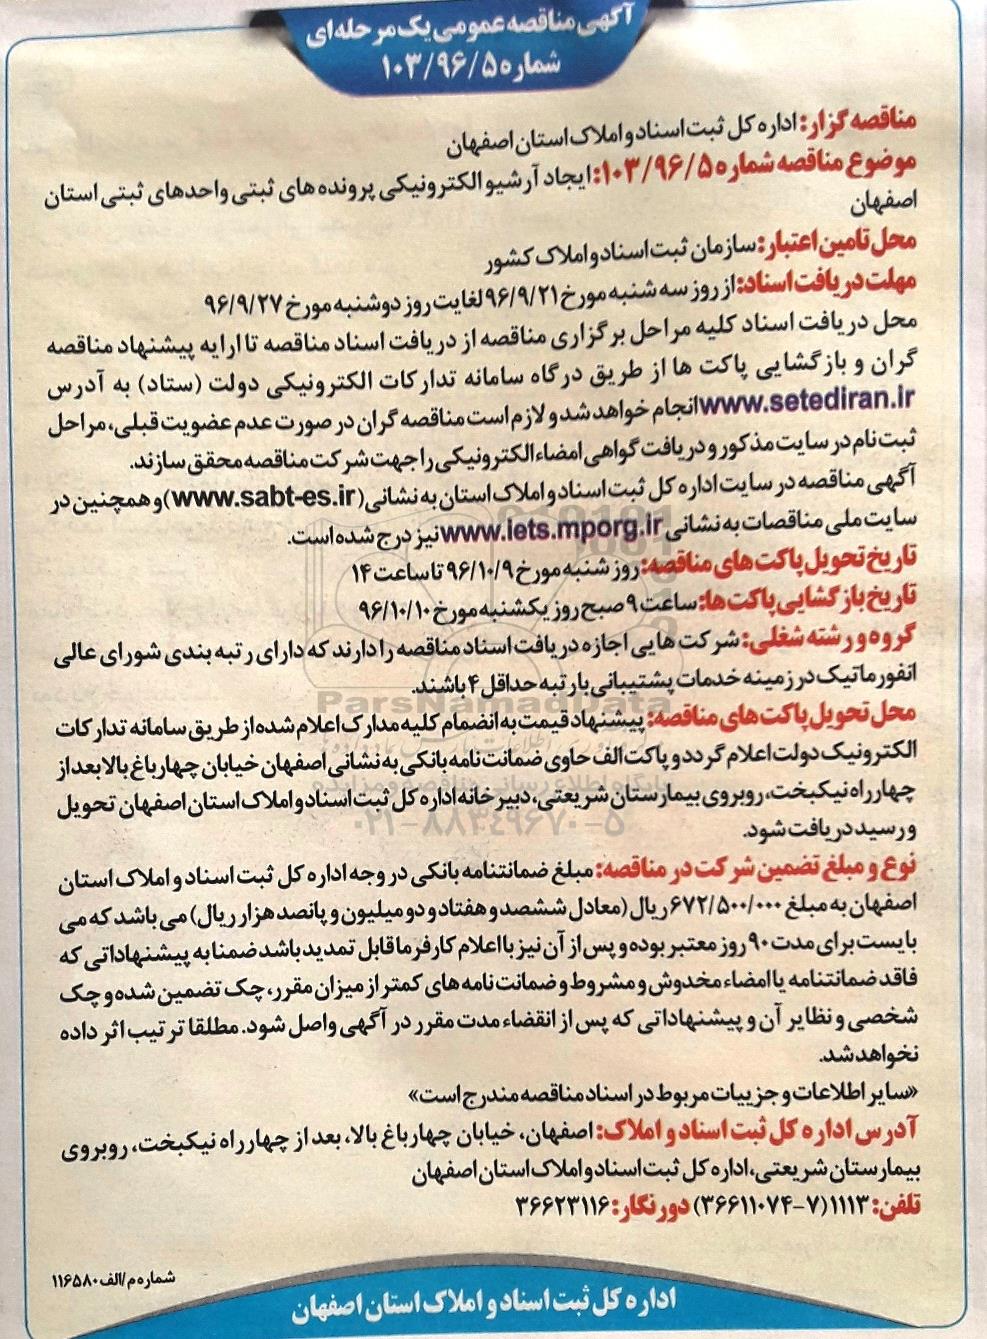 آگهی مناقصه عمومی یک مرحله‌ای
شماره ۱۰۳/۹۶/۵
مناقصه گزار: اداره کل ثبت اسناد و املاک استان اصفهان
موضوع مناقصه شماره ۱۰۳/۹۶/۵: ایجاد آرشیو الکترونیکی پرونده های ثبتی واحدهای ثبتی استان
اصفهان
محل تامین اعتبار: سازمان ثبت اسناد و املاک کشور
مهلت دریافت اسناد: از روز سه شنبه مورخ ۹۶/۹/۲۱ لغایت روز دوشنبه مورخ ۹۶/۹/۲۷
محل دریافت اسناد کلیه مراحل برگزاری مناقصه از دریافت اسناد مناقصه تا ارایه پیشنهاد مناقصه
گران و بازگشایی پاکت ها از طریق درگاه سامانه تدارکات الکترونیکی دولت (ستاد) به آدرس
www.setediran.ir انجام خواهد شد و لازم است مناقصه گران در صورت عدم عضویت قبلی، مراحل
ثبت نام در سایت مذکور و دریافت گواهی امضاء الکترونیکی را جهت شرکت مناقصه محقق سازند.
آگهی مناقصه در سایت اداره کل ثبت اسناد و املاک استان به نشانی (www.sabt-es.ir) و همچنین در
سایت ملی مناقصات به نشانی www.iets.mporg.ir نیز درج شده است.
تاریخ تحویل پاکت های مناقصه: روز شنبه مورخ ۹۶/۱۰/۹ تا ساعت ۱۴
تاریخ بازگشایی پاکت ها: ساعت ۹ صبح روز یکشنبه مورخ ۹۶/۱۰/۱۰
گروه و رشته شغلی: شرکت هایی اجازه دریافت اسناد مناقصه را دارند که دارای رتبه بندی شورای عالی
انفورماتیک در زمینه خدمات پشتیبانی با رتبه حداقل ۴ باشند.
ParsNamadData
محل تحویل پاکت های مناقصه: پیشنهاد قیمت به انضمام کلیه مدارک اعلام شده از طریق سامانه تدارکات
الکترونیک دولت اعلام گردد و پاکت الف حاوی ضمانت نامه بانکی به نشانی اصفهان خیابان چهارباغ بالا بعد از
چهارراه نیکبخت، روبروی بیمارستان شریعتی، دبیرخانه اداره کل ثبت اسناد و املاک استان اصفهان تحویل
و رسید دریافت شود.
۰۲۱-۸۸۳۴۹۶۷۰-۵
نوع و مبلغ تضمین شرکت در مناقصه: مبلغ ضمانتنامه بانکی در وجه اداره کل ثبت اسناد و املاک استان
اصفهان به مبلغ ۶۷۲/۵۰۰/۰۰۰ ریال (معادل ششصد و هفتاد و دو میلیون و پانصد هزار ریال) می باشد که می
بایست برای مدت ۹۰ روز معتبر بوده و پس از آن نیز با اعلام کارفرما قابل تمدید باشد ضمنا به پیشنهاداتی که
فاقد ضمانتنامه یا امضاء مخدوش و مشروط و ضمانت نامه های کمتر از میزان مقرر، چک تضمین شده و چک
شخصی و نظایر آن و پیشنهاداتی که پس از انقضاء مدت مقرر در آگهی واصل شود. مطلقا ترتیب اثر داده
نخواهد شد.
«سایر اطلاعات و جزییات مربوط در اسناد مناقصه مندرج است»
آدرس اداره کل ثبت اسناد و املاک: اصفهان، خیابان چهارباغ بالا، بعد از چهارراه نیکبخت، روبروی
بیمارستان شریعتی، اداره کل ثبت اسناد و املاک استان اصفهان
تلفن: ۱۱۱۳ (۷-۳۶۶۱۱۰۷۴) دورنگار: ۳۶۶۲۳۱۱۶
شماره م/الف ۱۱۶۵۸۰
اداره کل ثبت اسناد و املاک استان اصفهان